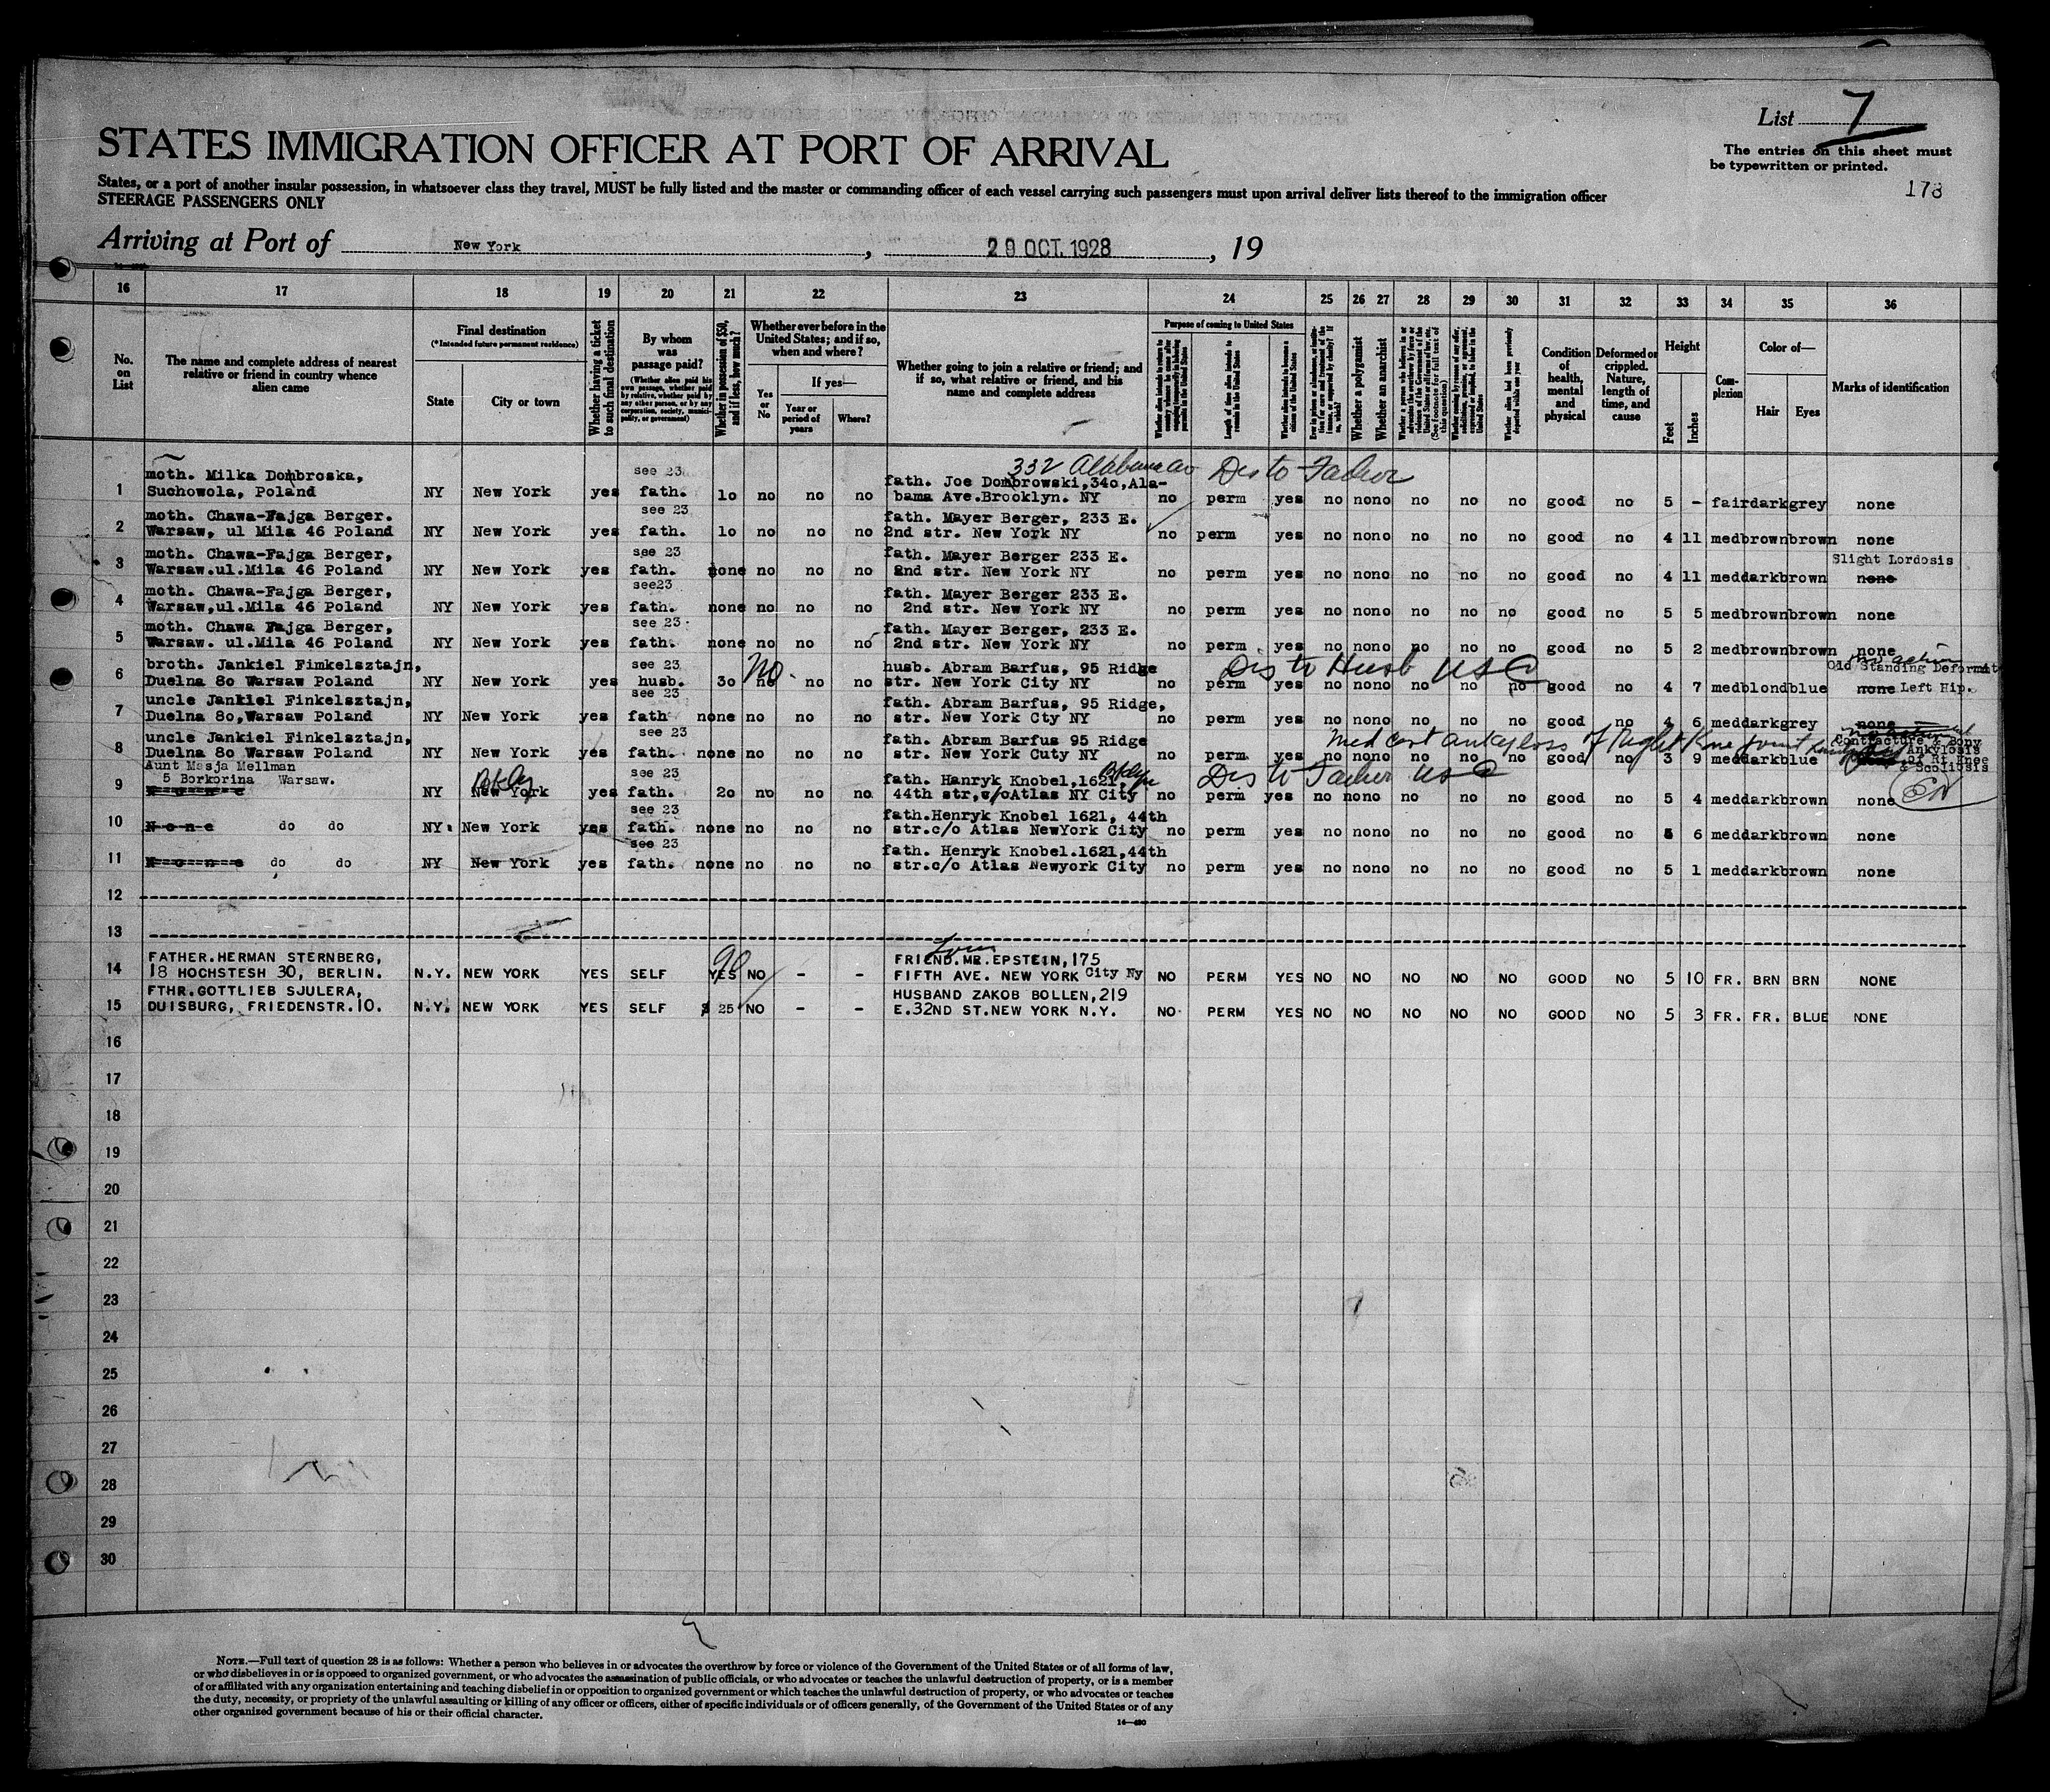 List 7
The entries on this sheet must
be typewritten or printed.
178
STATES IMMIGRATION OFFICER AT PORT OF ARRIVAL
States, or a port of another insular possession, in whatsoever class they travel, MUST be fully listed and the master or commanding officer of each vessel carrying such passengers must upon arrival deliver lists thereof to the immigration officer
STEERAGE PASSENGERS ONLY
Arriving at Port of New York, 29 OCT. 1928, 19
16 17 18 19 20 21 22 23 24 25 26 27 28 29 30 31 32 33 34 35 36
No. on List
The name and complete address of nearest relative or friend in country whence alien came
Final destination
(*Intended future permanent residence)
State
City or town
Whether having a ticket to such final destination
By whom was passage paid?
(Whether alien paid his own passage, whether paid by relative, whether paid by any other person, or by any corporation, society, municipality, or government)
Whether in possession of $50, and if less, how much?
Whether ever before in the United States; and if so, when and where?
Yes or No
If yes—
Year or period of years
Where?
Whether going to join a relative or friend; and if so, what relative or friend, and his name and complete address
Purpose of coming to United States
Length of time alien intends to remain in the United States
Whether alien intends to become a citizen of the United States
Whether a polygamist
Whether an anarchist
Condition of health, mental and physical
Deformed or crippled. Nature, length of time, and cause
Height
Feet
Inches
Complexion
Color of—
Hair
Eyes
Marks of identification
332 Alabama av Dis to Father
1 moth. Milka Dombroska, Suchowola, Poland NY New York yes see 23 fath. 10 no no no fath. Joe Dombrowski,340,Alabama Ave.Brooklyn. NY no perm yes no nono no no no good no 5 - fair dark grey none
2 moth. Chawa-Fajga Berger. Warsaw, ul Mila 46 Poland NY New York yes see 23 fath. 10 no no no fath. Mayer Berger, 233 E. 2nd str. New York NY no perm yes no nono no no no good no 4 11 med brown brown none
3 moth. Chawa-Fajga Berger, Warsaw.ul.Mila 46 Poland NY New York yes see 23 fath. none no no no fath. Mayer Berger 233 E. 2nd str. New York NY no perm yes no nono no no no good no 4 11 med dark brown none Slight Lordosis
4 moth. Chawa-Fajga Berger, Warsaw,ul.Mila 46 Poland NY New York yes see23 fath. none no no no fath. Mayer Berger 233 E. 2nd str. New York NY no perm yes no nono no no no good no 5 5 med brown brown none
5 moth. Chawa Fajga Berger, Warsaw. ul.Mila 46 Poland NY New York yes see 23 fath. none no no no fath. Mayer Berger, 233 E. 2nd str. New York NY no perm yes no nono no no no good no 5 2 med brown brown none
No. Dis to Husb USC no action
6 broth. Jankiel Fimkelsztajn, Duelna 80 Warsaw Poland NY New York yes see 23 husb. 30 no no no husb. Abram Barfus, 95 Ridge str. New York City NY no perm yes no nono no no no good no 4 7 med blond blue none Old Standing Deformit Left Hip.
7 uncle Jankiel Finkelsztajn, Duelna 80,Warsaw Poland NY New York yes see 23 fath none no no no fath. Abram Barfus, 95 Ridge, str. New York Cty NY no perm yes no nono no no no good no 4 6 med dark grey none
Med cert ankylosis of Right Knee joint
8 uncle Jankiel Finkelsztajn, Duelna 80 Warsaw Poland NY New York yes see 23 fath. none no no no fath. Abram Barfus 95 Ridge str. New York Cuty NY no perm yes no nono no no no good no 3 9 med dark blue Contracture & Bony Ankylosis of Rt Knee & Scoliosis
Bkly Bklyn Dis to Father USC
9 Aunt Masja Mellman 5 Borkorina Warsaw. None NY New York yes see 23 fath. 20 no no no fath. Hanryk Knobel,1621, 44th str,c/oAtlas NY City no perm yes no nono no no no good no 5 4 med dark brown none
10 None do do NY. New York yes see 23 fath. none no no no fath.Henryk Knobel 1621, 44th str.c/o Atlas NewYork City no perm yes no nono no no no good no 5 6 med dark brown none
11 None do do NY New York yes see 23 fath. none no no no fath. Henryk Knobel.1621,44th str.c/o Atlas Newyork City no perm yes no nono no no no good no 5 1 med dark brown none
12
13
14 FATHER.HERMAN STERNBERG, 18 HOCHSTESH 30, BERLIN. N.Y. NEW YORK YES SELF YES 90 NO - - FRIEND.MR.EPSTEIN,175 FIFTH AVE. NEW YORK City Ny NO PERM YES NO NO NO NO NO GOOD NO 5 10 FR. BRN BRN NONE
15 FTHR.GOTTLIEB SJULERA, DUISBURG, FRIEDENSTR.10. N.Y. NEW YORK YES SELF $ 25 NO - - HUSBAND ZAKOB BOLLEN,219 E.32ND ST.NEW YORK N.Y. NO PERM YES NO NO NO NO NO GOOD NO 5 3 FR. FR. BLUE NONE
16
17
18
19
20
21
22
23
24
25
26
27
28
29
30
NOTE.—Full text of question 28 is as follows: Whether a person who believes in or advocates the overthrow by force or violence of the Government of the United States or of all forms of law,
or who disbelieves in or is opposed to organized government, or who advocates the assassination of public officials, or who advocates or teaches the unlawful destruction of property, or is a member
of or affiliated with any organization entertaining and teaching disbelief in or opposition to organized government or which teaches the unlawful destruction of property, or who advocates or teaches
the duty, necessity, or propriety of the unlawful assaulting or killing of any officer or officers, either of specific individuals or of officers generally, of the Government of the United States or of any
other organized government because of his or their official character.
14—430